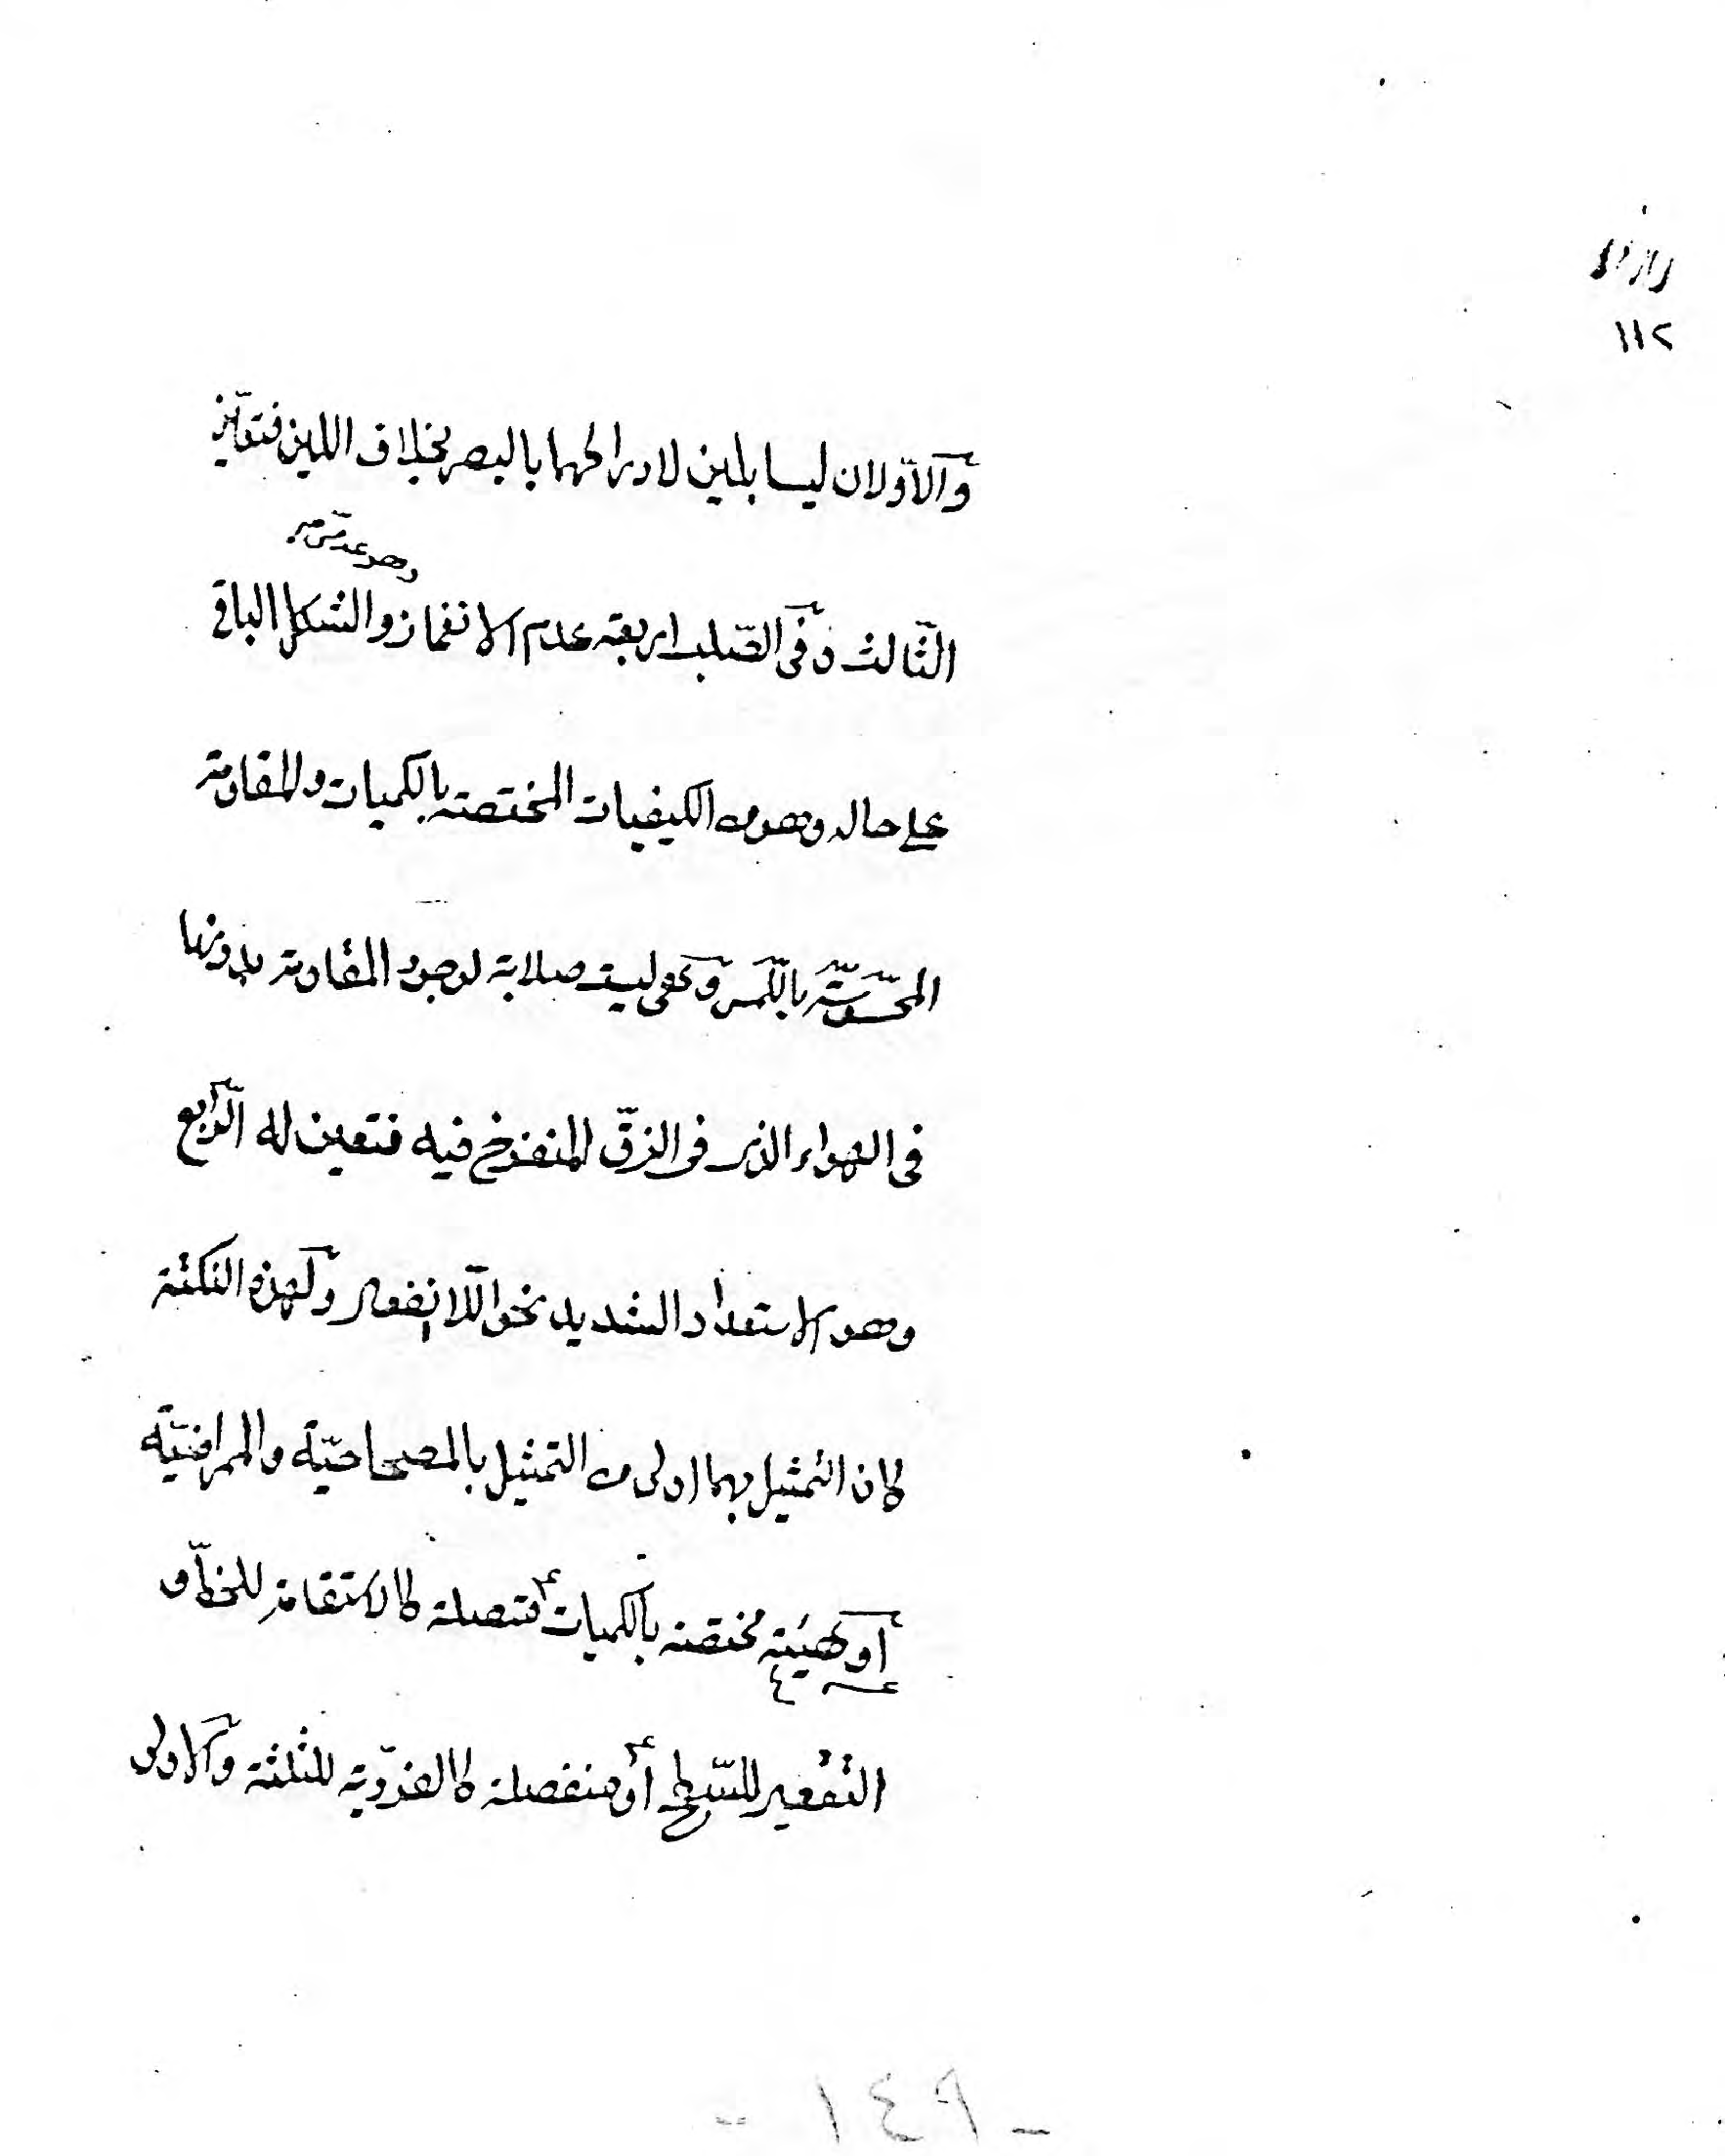 ١١٢
والاولان ليسا بلين لادراكهما بالبصر بخلاف اللين فتعين
وهو عدمى
الثالث وفى الصلب اربعة عدم الانغماز والشكل الباقى
على حاله وهو من الكيفيات المختصة بالكميات والمقاومة
المحسوسة باللمس وهى ليست صلابة لوجود المقاومة بدونها
فى الهواء الذى فى الزق المنفوخ فيه فتعين له الرابع
وهو الاستعداد الشديد نحو اللاانفعال ولهذه النكتة
كان التمثيل بهما اولى من التمثيل بالمصحاحية والممراضية
او كهيئة مختصة بالكميات متصلة كالاستقامة للخط او
التقعير للسطح او منفصلة كالفردية للثلثة والاولى
- ١٤٩ -